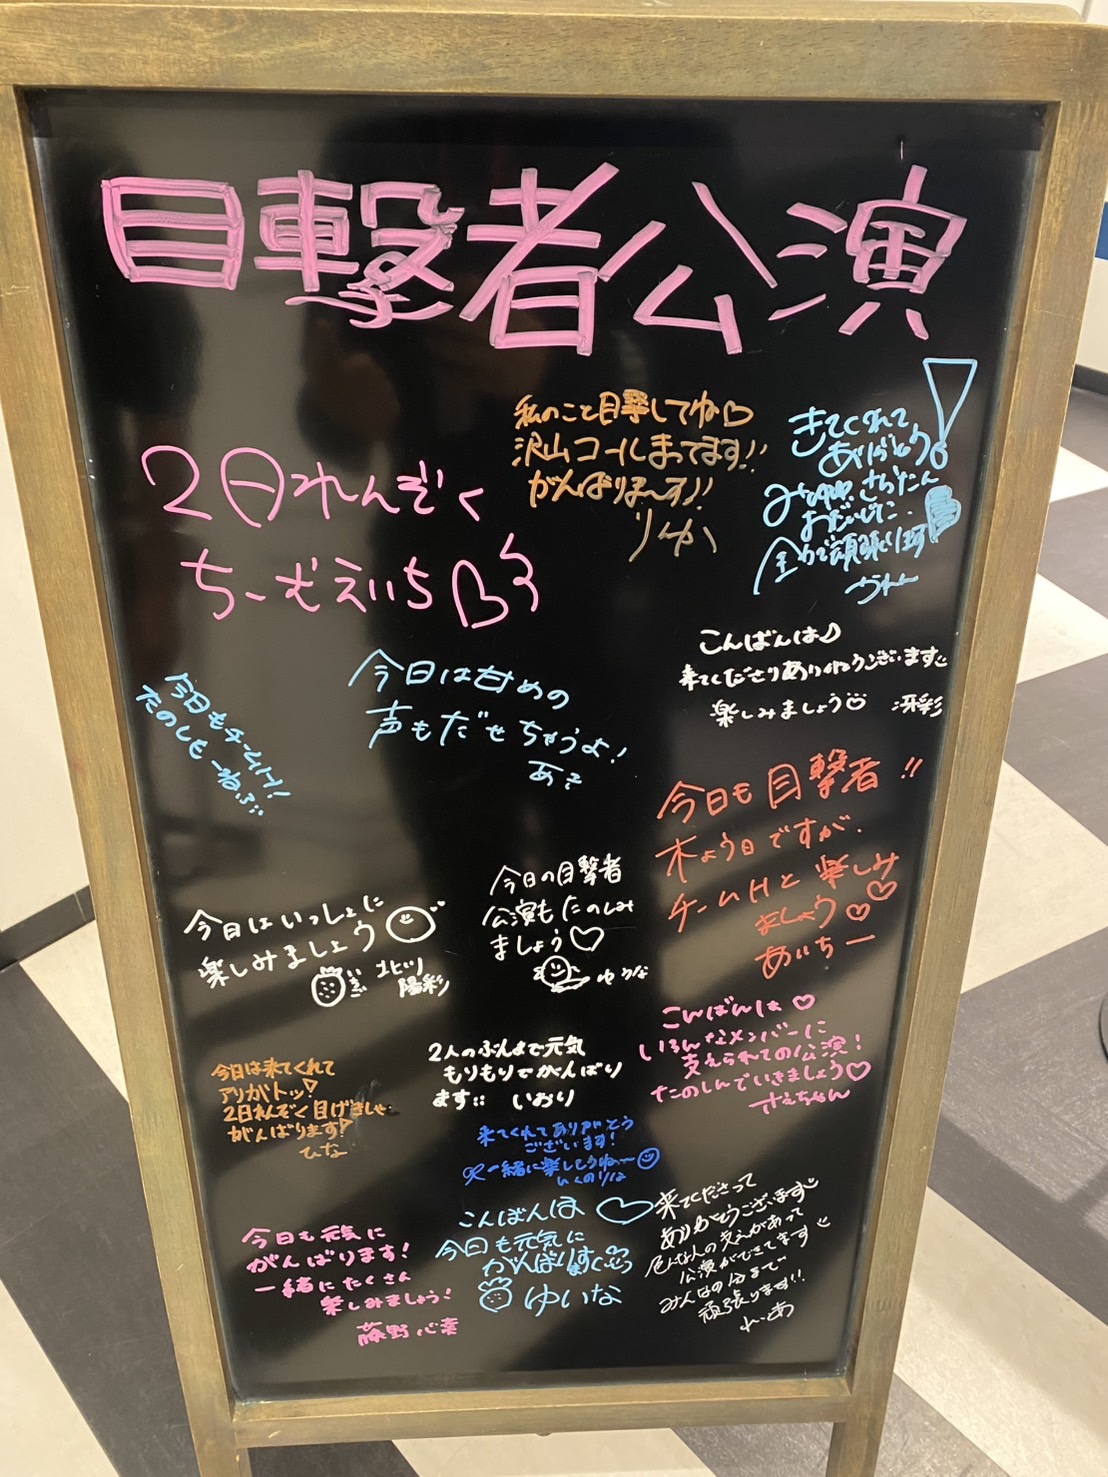 目撃者公演
私のこと目撃してね♡
沢山コールまってます!!
がんばりまーす!!
りゆか
きてくれて
ありがとう!
おだいじに
全力で頑張ります
2日れんぞく
ちーむえいち♡
こんばんは♪
来てくださりありがとうございます
楽しみましょう
冴彩
今日もチームH!
たのしもーね
今日は甘めの
声もだせちゃうよ!
あき
今日も目撃者!!
木ょう日ですが、
チームHと楽しみ
ましょう♡♡
あいちー
今日はいっしょに
楽しみましょう
陽彩
今日の目撃者
公演もたのしみ
ましょう♡
ゆうな
こんばんは♡
いろんなメンバーに
支えられての公演!
たのしんでいきましょう♡
さえちゃん
今日は来てくれて
アリがトッ!
2日れんぞく目げきしゃ
がんばります!
ひな
2人のぶんまで元気
もりもりでがんばり
ます:: いおり
来てくれてありがとう
ございます!
一緒に楽しもうね〜
いくのりは
今日も元気に
がんばります!
一緒にたくさん
楽しみましょう!
藤野心葉
こんばんは ♡
今日も元気に
がんばります
ゆいな
来てくださって
ありがとうございます
色んな人の支えがあって
公演ができてます
みんなの分まで
頑張ります!!
れーあ